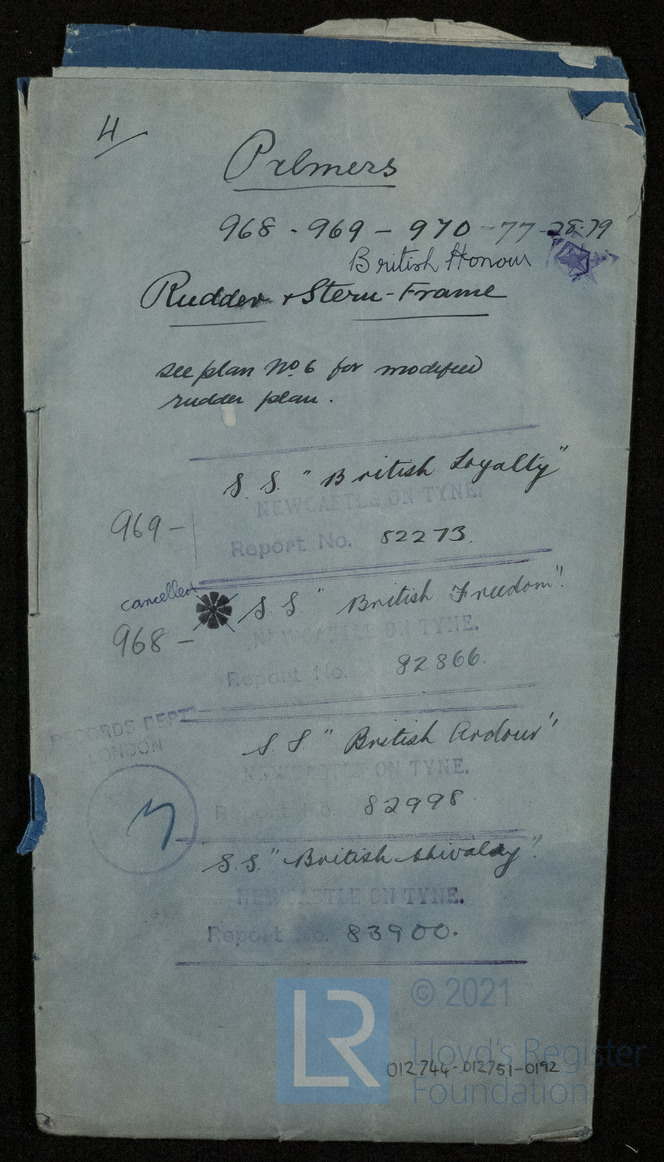 4/
Palmers
968 - 969 - 970 - 77 - 78-79
British Honour
Rudder & Stern-Frame
see plan No 6 for modified
rudder plan.
S.S. "British Loyalty"
NEWCASTLE ON TYNE.
969 -
Report No. 82273.
cancelled
S.S " British Freedom"
968 -
NEWCASTLE ON TYNE.
Report No. 82866.
RECORDS DEPT
LONDON
S.S " British Ardour"
NEWCASTLE ON TYNE.
Report No. 82998
S.S. "British Chivalry"
NEWCASTLE ON TYNE.
Report No. 83900.
LR
© 2021
Lloyd's Register
Foundation
012744-012751-0192